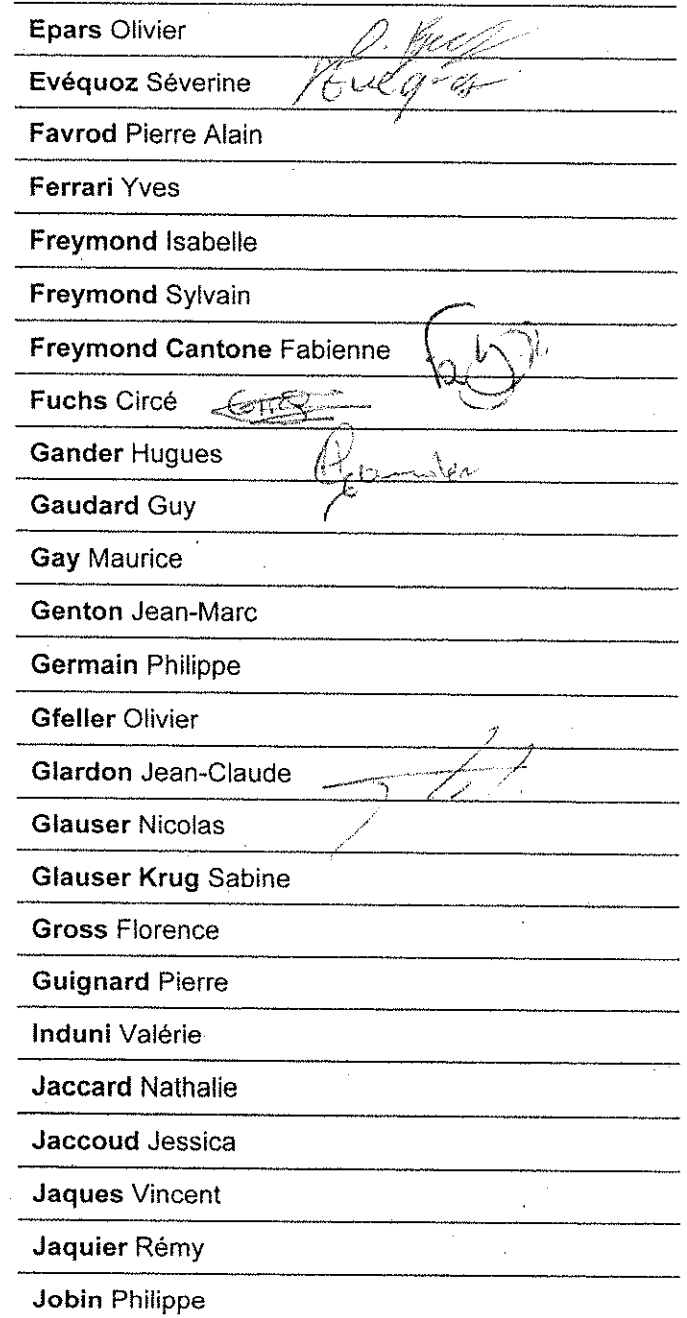 Epars Olivier
Evéquoz Séverine
Favrod Pierre Alain
Ferrari Yves
Freymond Isabelle
Freymond Sylvain
Freymond Cantone Fabienne
Fuchs Circé
Gander Hugues
Gaudard Guy
Gay Maurice
Genton Jean-Marc
Germain Philippe
Gfeller Olivier
Glardon Jean-Claude
Glauser Nicolas
Glauser Krug Sabine
Gross Florence
Guignard Pierre
Induni Valérie
Jaccard Nathalie
Jaccoud Jessica
Jaques Vincent
Jaquier Rémy
Jobin Philippe